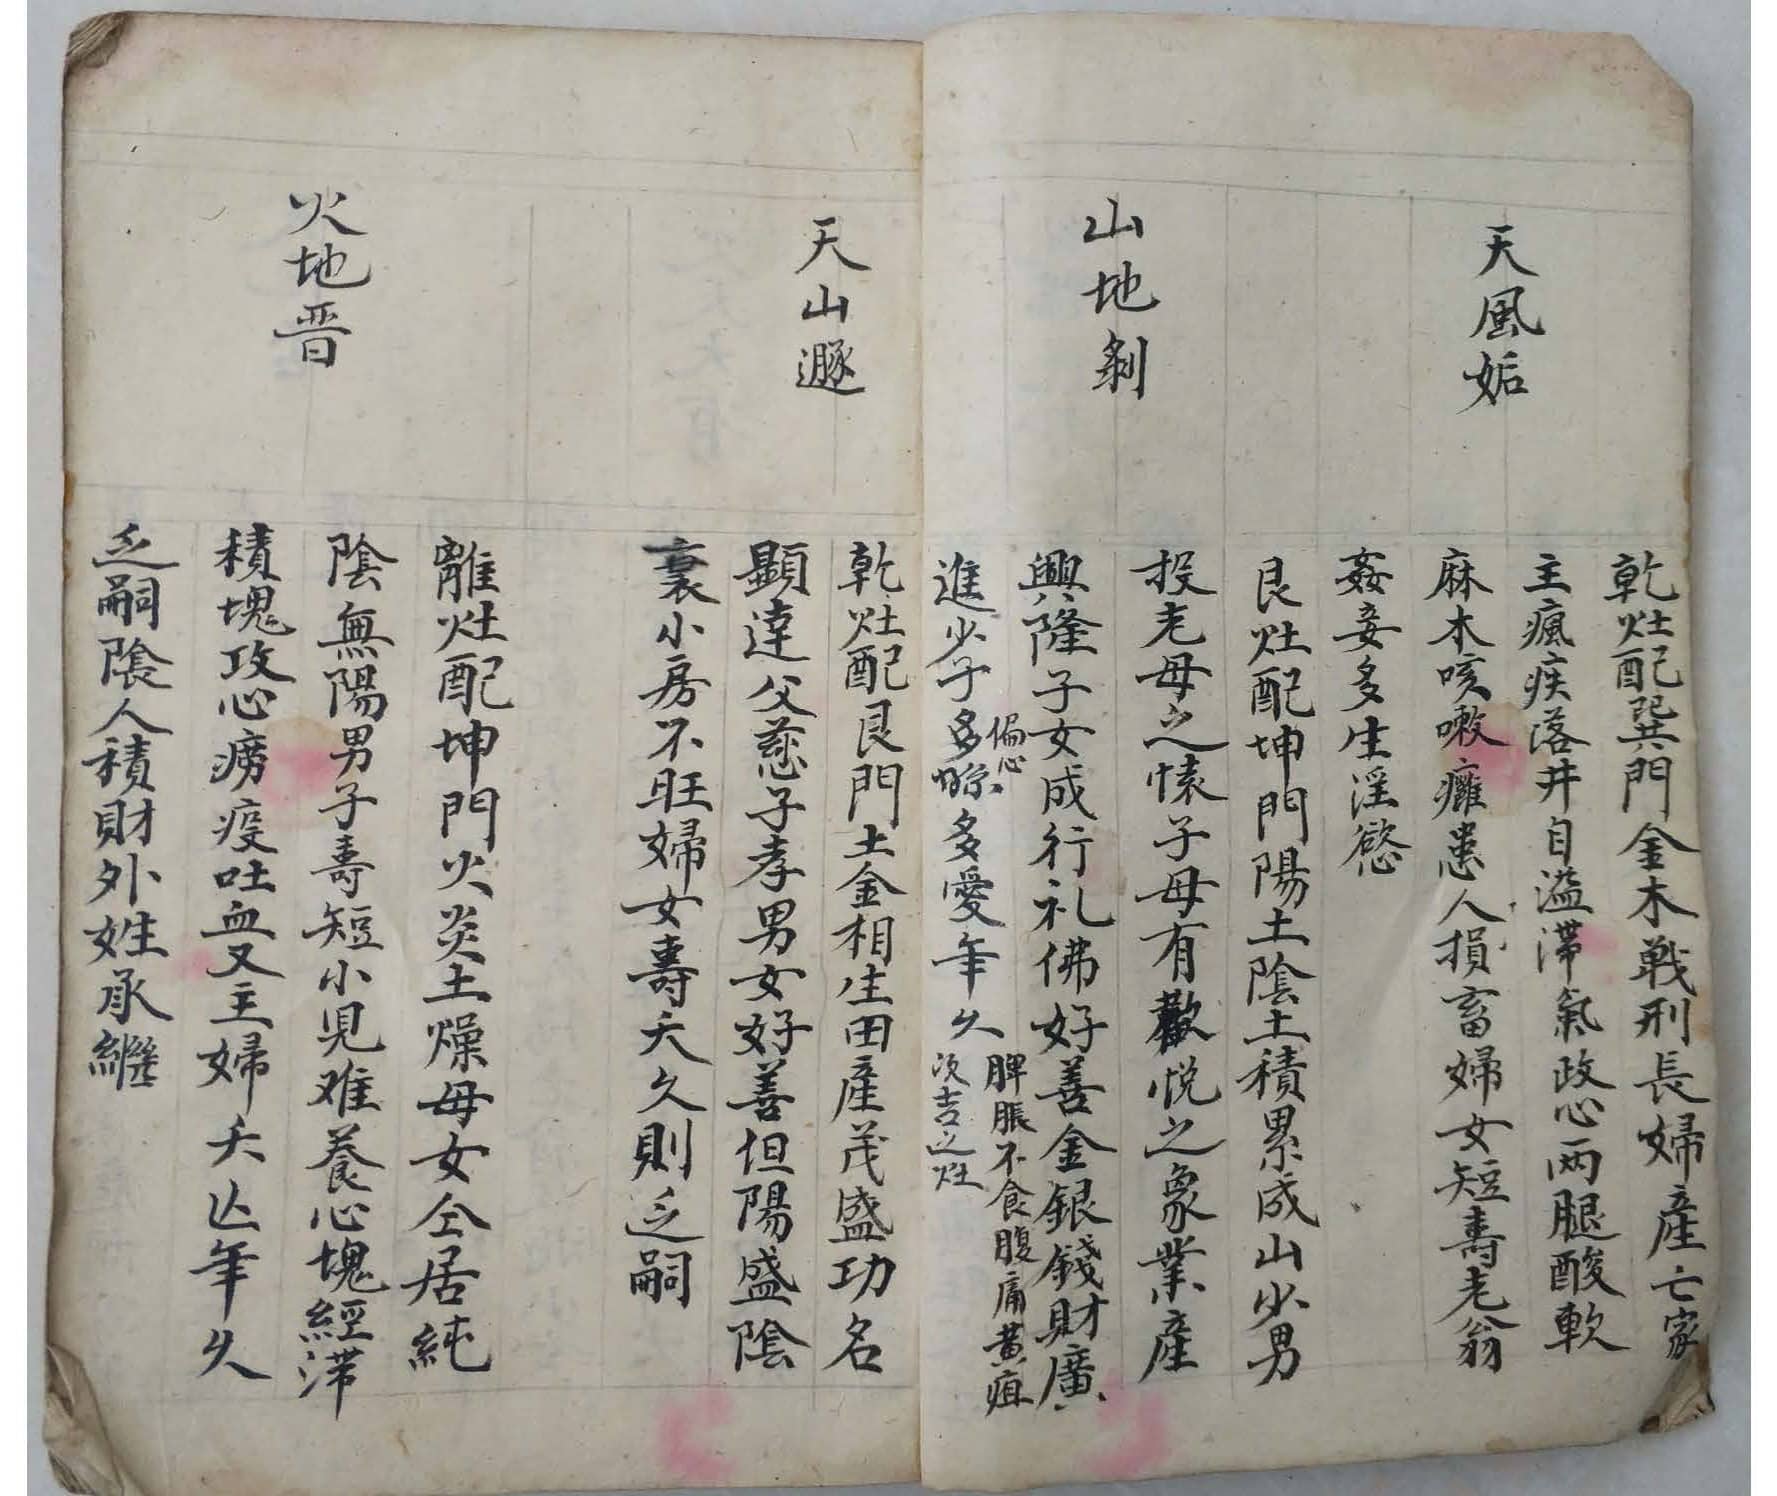 天風姤
乾灶配巽門金木戰刑長婦產亡家
主瘋疾落井自溢滯氣攻心两腿酸軟
麻木咳嗽癱患人損畜婦女短壽老翁
姦妾多生淫慾
山地剝
艮灶配坤門陽土陰土積累成山少男
投老母之懐子母有歡悅之象業產
興隆子女成行礼佛好善金銀錢財廣
進少子多
偏心
多愛年久
脾脹不食腹痛黃疸
次吉之灶
天山遯
乾灶配艮門土金相生田產茂盛功名
顯達父慈子孝男女好善但陽盛陰
衰小房不旺婦女壽夭久則乏嗣
火地晋
離灶配坤門火炎土燥母女仝居純
陰無陽男子壽短小児难養心塊經滯
積塊攻心癆疫吐血又主婦夭亡年久
乏嗣陰人積財外姓承繼